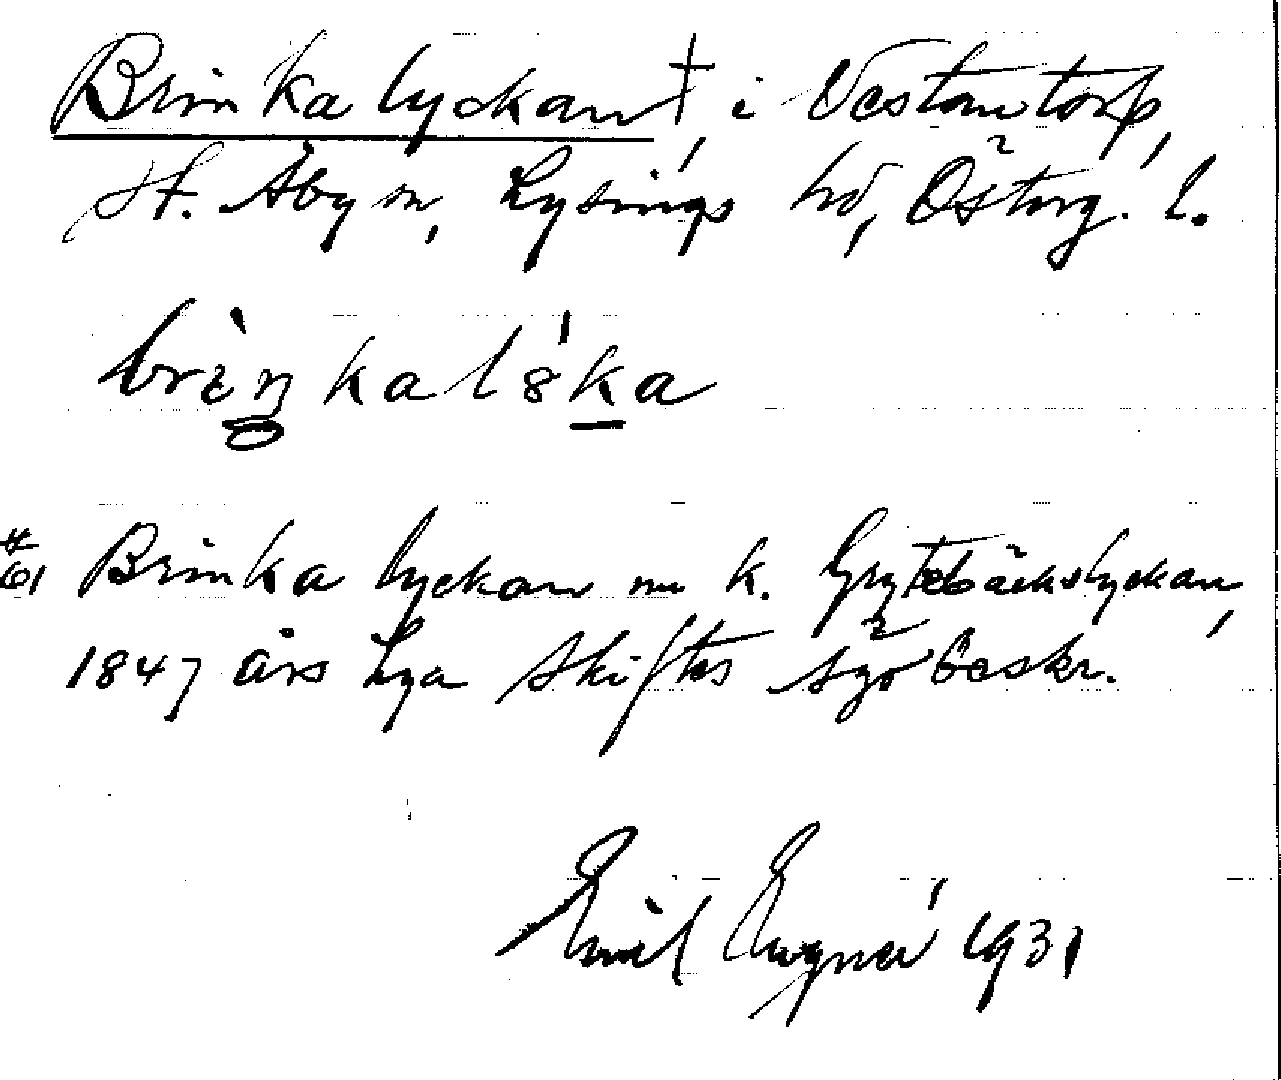 Brinkalyckan†, i Västantorp,
St. Åby sn, Lysings hd, Österg. l.
brɩ̀ŋkal8́ka
# 61 Brinkalyckan nu k. Grytebäckslyckan,
1847 års Lga skiftes ägobeskr.
Emil Engné 1931